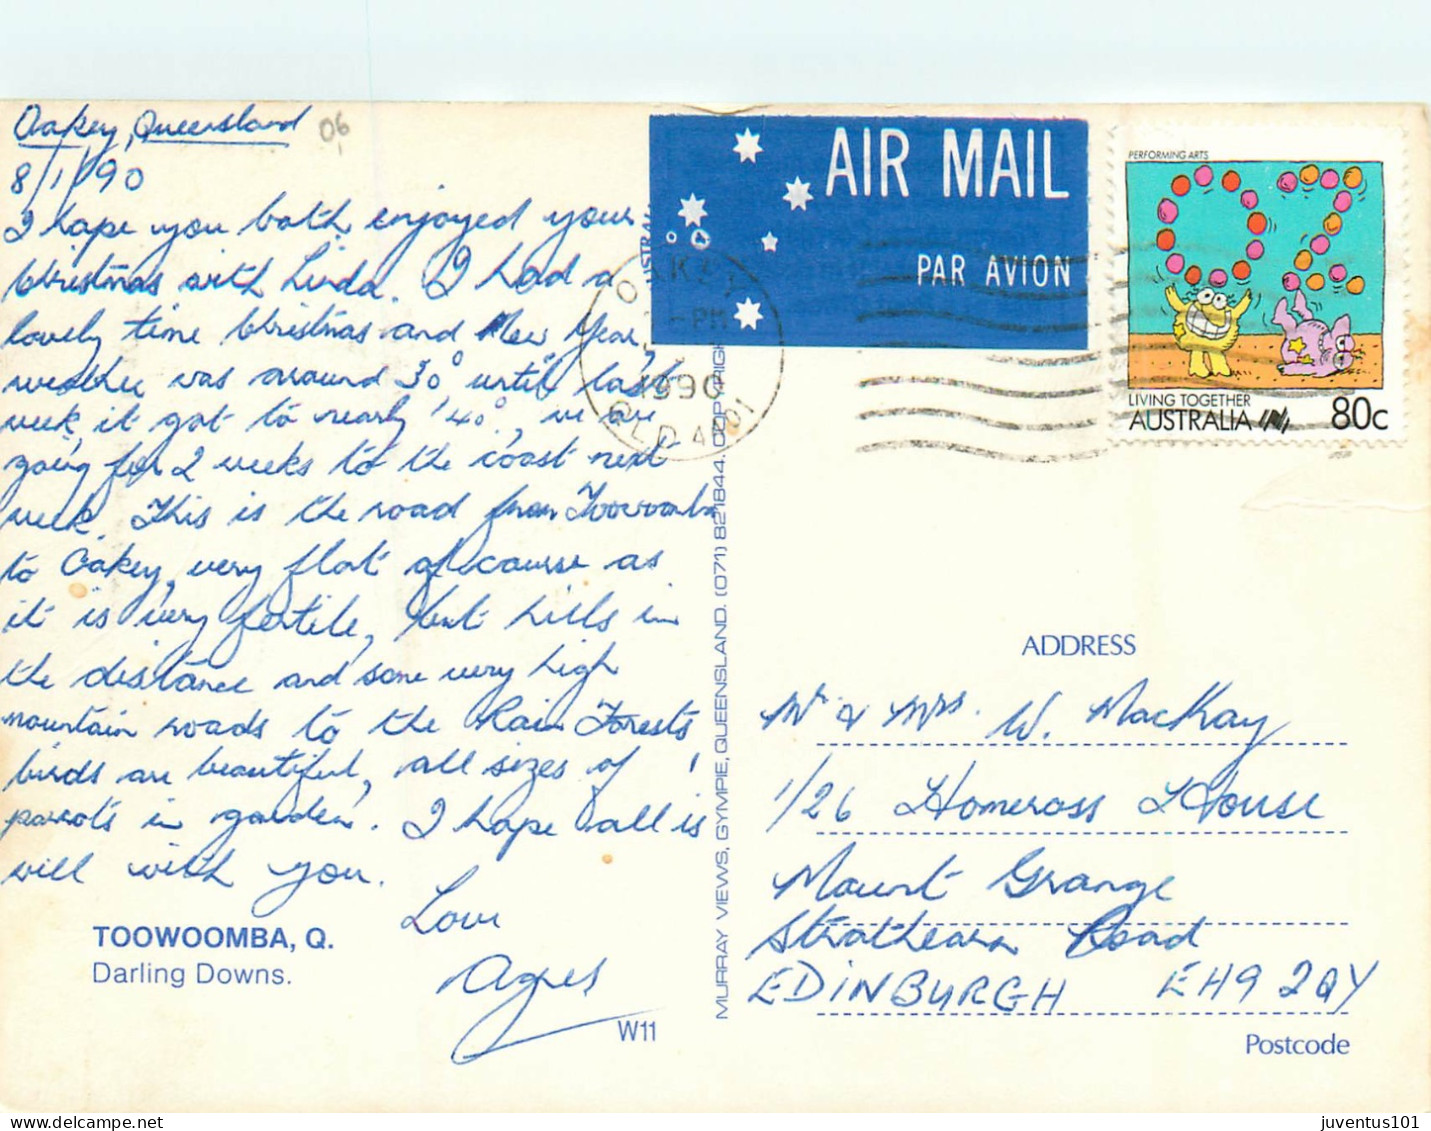 Oakey, Queensland
06
8/1/90
I hope you both enjoyed your
Christmas with Linda. I had a
lovely time Christmas and New Year,
weather was around 30° until last
week, it got to nearly 40°, we are
going for 2 weeks to the coast next
week. This is the road from Toowoomba
to Oakey, very flat of course as
it is very fertile, but hills in
the distance and some very high
mountain roads to the Rain Forests,
birds are beautiful, all sizes of
parrots in garden. I hope all is
well with you.
Love
Agnes
TOOWOOMBA, Q.
Darling Downs.
W11
MURRAY VIEWS, GYMPIE, QUEENSLAND. (071) 821844. COPYRIGHT
AIR MAIL
PAR AVION
OAKEY
-PM
1990
QLD 4401
PERFORMING ARTS
LIVING TOGETHER
AUSTRALIA 80c
ADDRESS
Mr & Mrs. W. MacKay
1/26 Homeross House
Mount Grange
Strathearn Road
EDINBURGH EH9 2QY
Postcode
juventus101